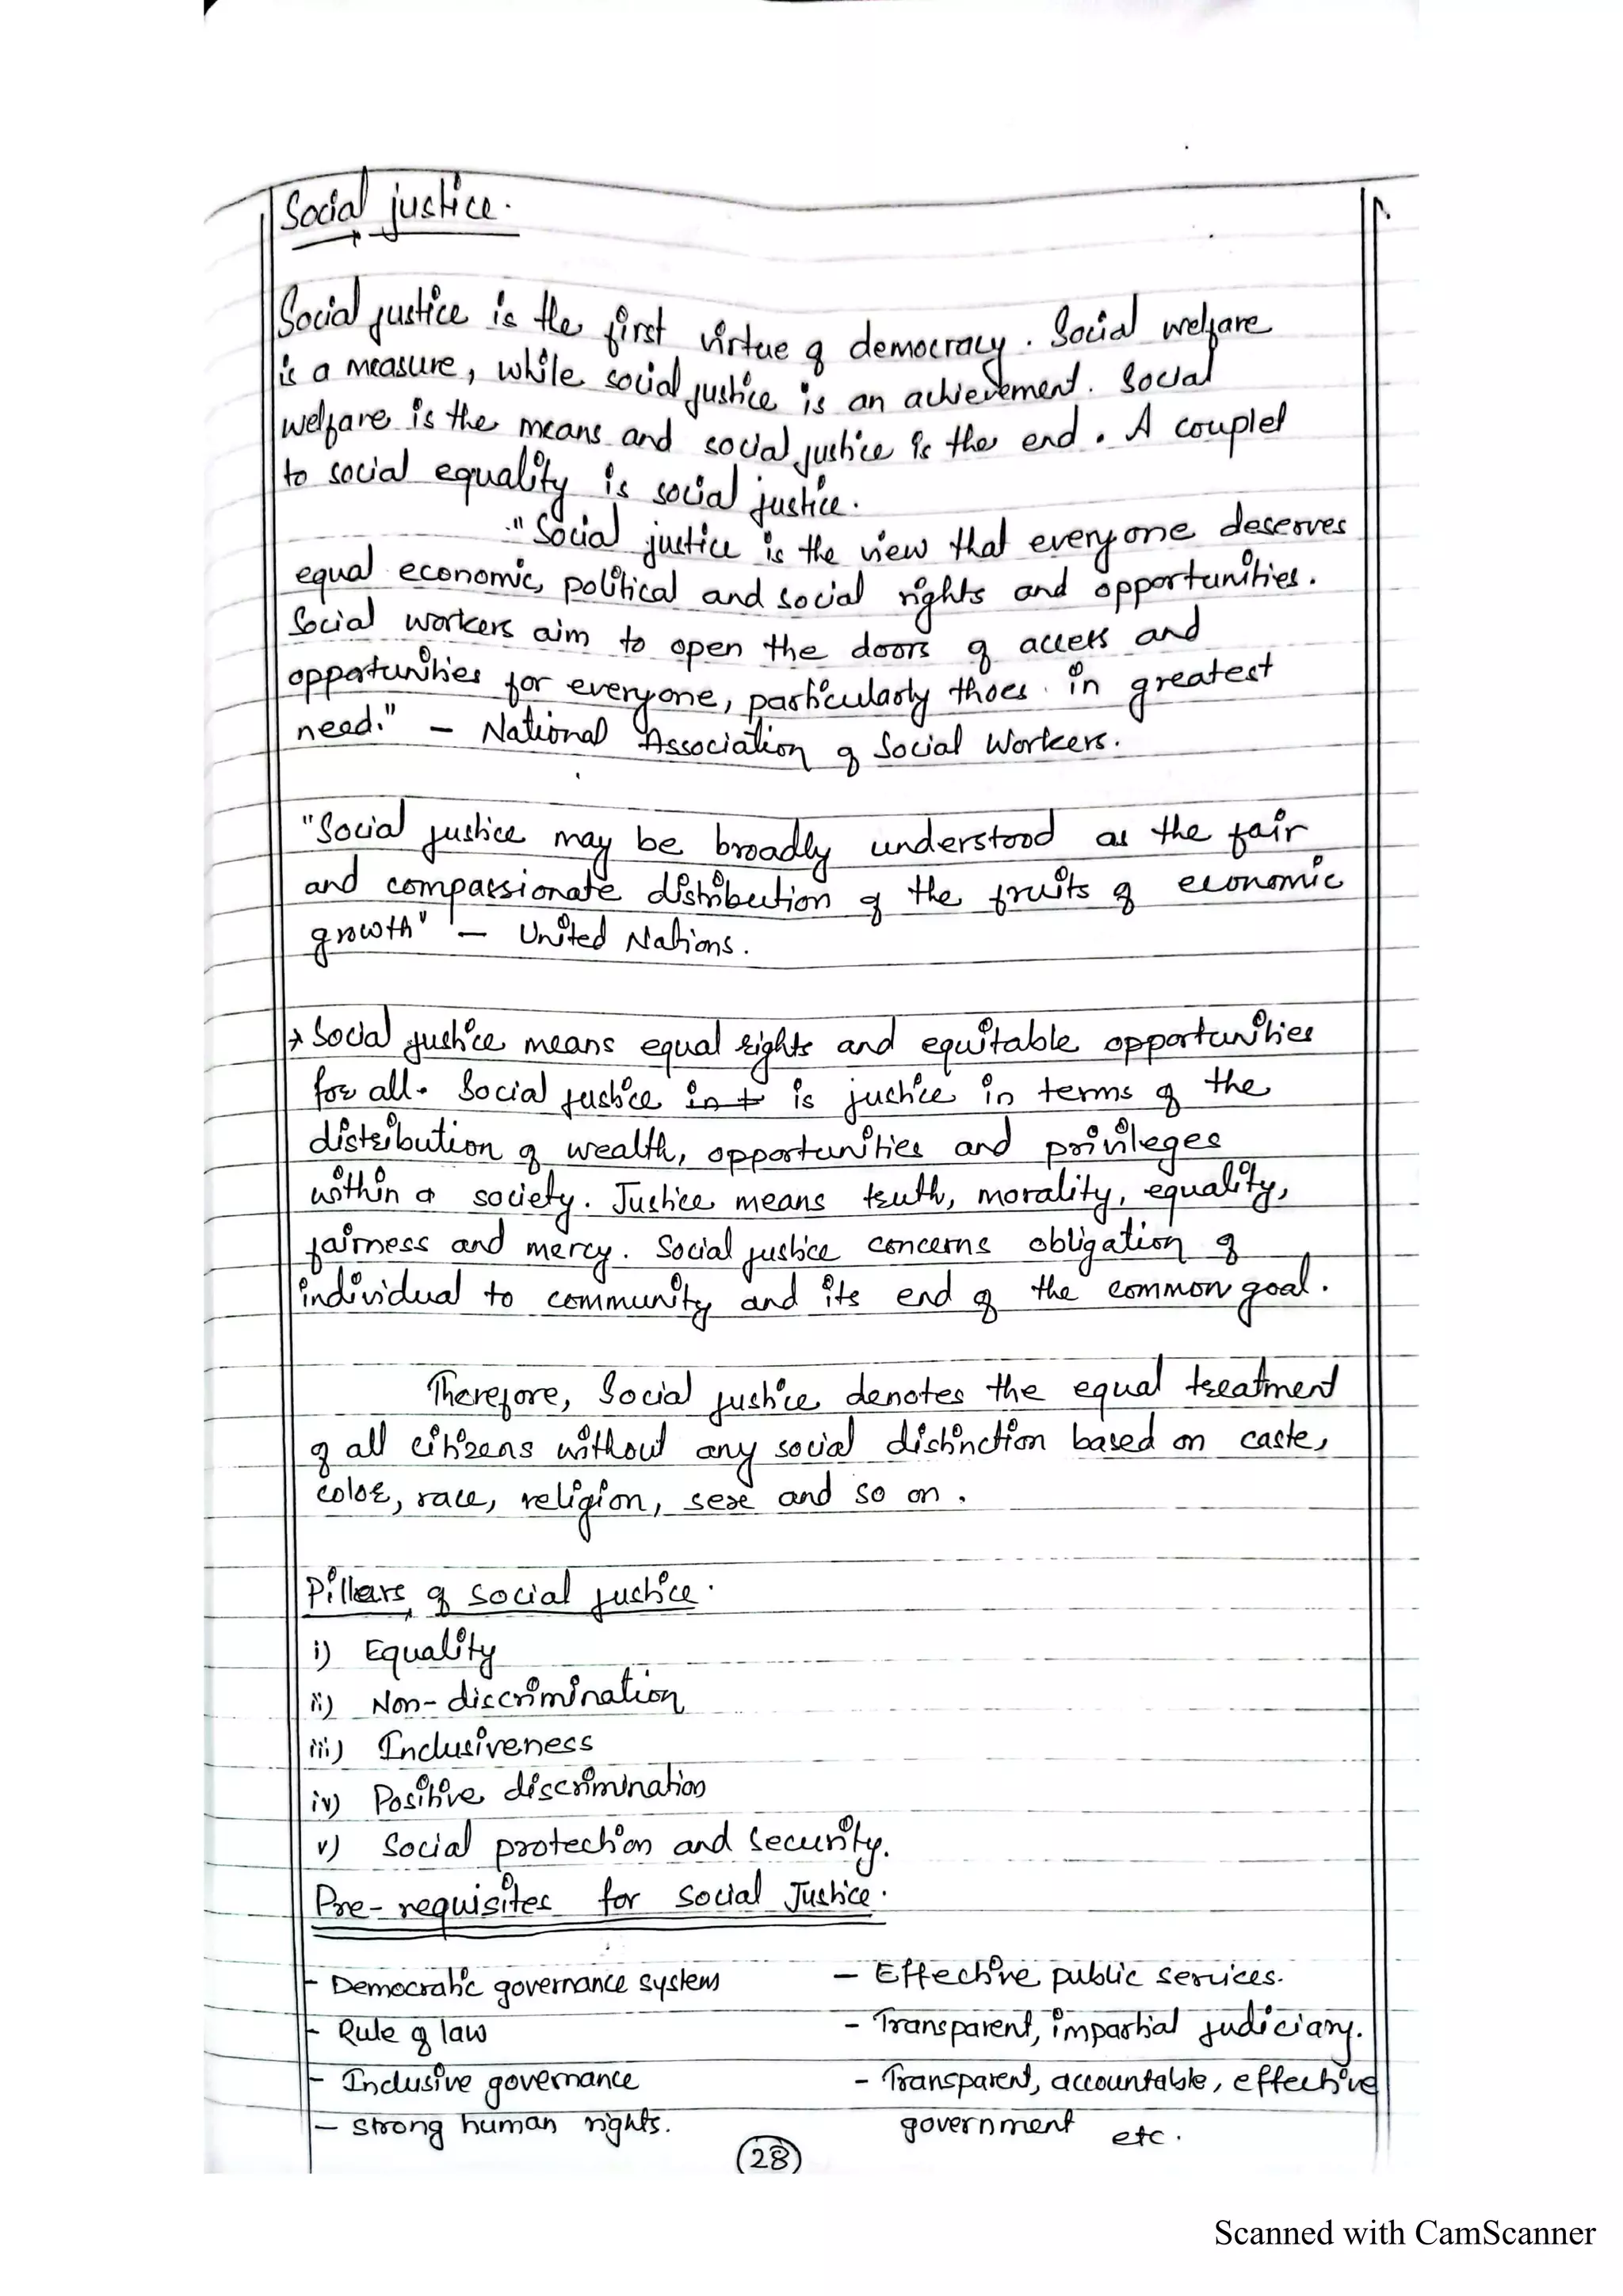 Social justice.
Social justice is the first virtue of democracy. Social welfare
is a measure, while social justice is an achievement. Social
welfare is the means and social justice is the end. A couplet
to social equality is social justice.
"Social justice is the view that everyone deserves
equal economic, political and social rights and opportunities.
Social workers aim to open the doors of access and
opportunities for everyone, particularly thoes in greatest
need." - National Association of Social Workers.
"Social justice may be broadly understood as the fair
and compassionate distribution of the fruits of economic
growth" - United Nations.
→ Social justice means equal rights and equitable opportunities
for all. Social justice int is justice in terms of the
distribution of wealth, opportunities and privileges
within a society. Justice means truth, morality, equality,
fairness and mercy. Social justice concerns obligation of
individual to community and its end of the common goal.
Therefore, Social justice denotes the equal treatment
of all citizens without any social distinction based on caste,
color, race, religion, sex and so on.
Pillars of social justice.
i) Equality
ii) Non-discrimination
iii) Inclusiveness
iv) Positive discrimination
v) Social protection and security.
Pre-requisites for social Justice.
- Democratic governance system - Effective public services.
- Rule of law - Transparent, impartial judiciary.
- Inclusive governance - Transparent, accountable, effective
- strong human rights. government etc.
28
Scanned with CamScanner